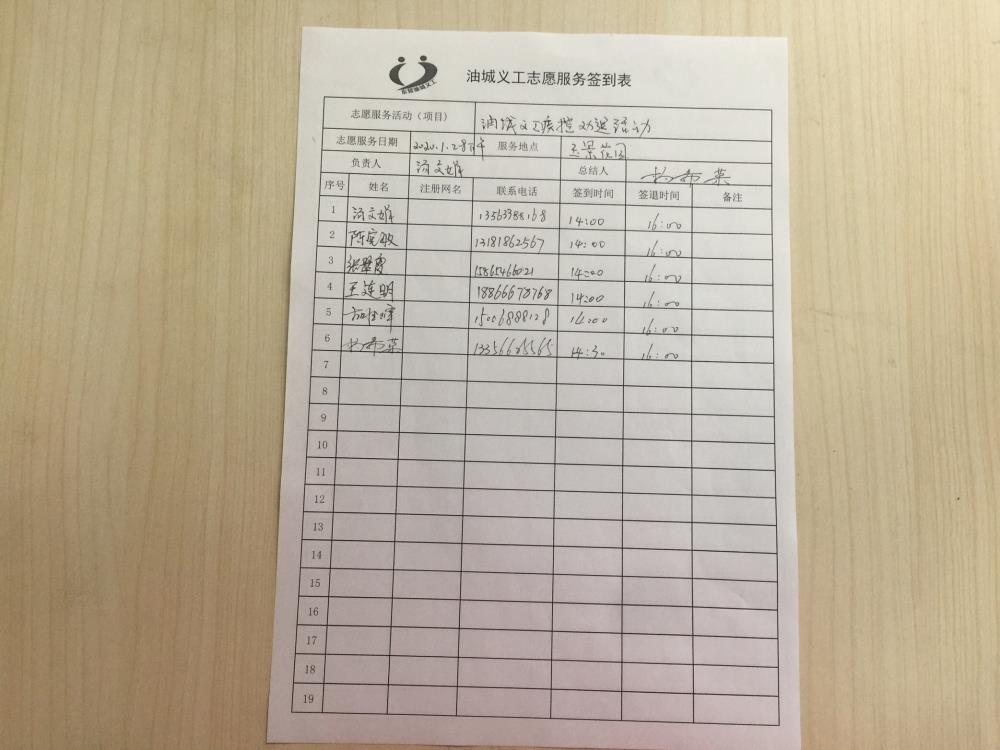 东营油城义工
油城义工志愿服务签到表
志愿服务活动（项目） 油城义工疾控劝返活动
志愿服务日期 2020.1.28下午 服务地点
负责人 总结人
序号 姓名 注册网名 联系电话 签到时间 签退时间 备注
1 13563388168 14:00 16:00
2 13181862567 14:00 16:00
3 15865466021 14:00 16:00
4 王建明 18866678768 14:00 16:00
5 15006888128 14:00 16:00
6 14:30 16:00
7
8
9
10
11
12
13
14
15
16
17
18
19